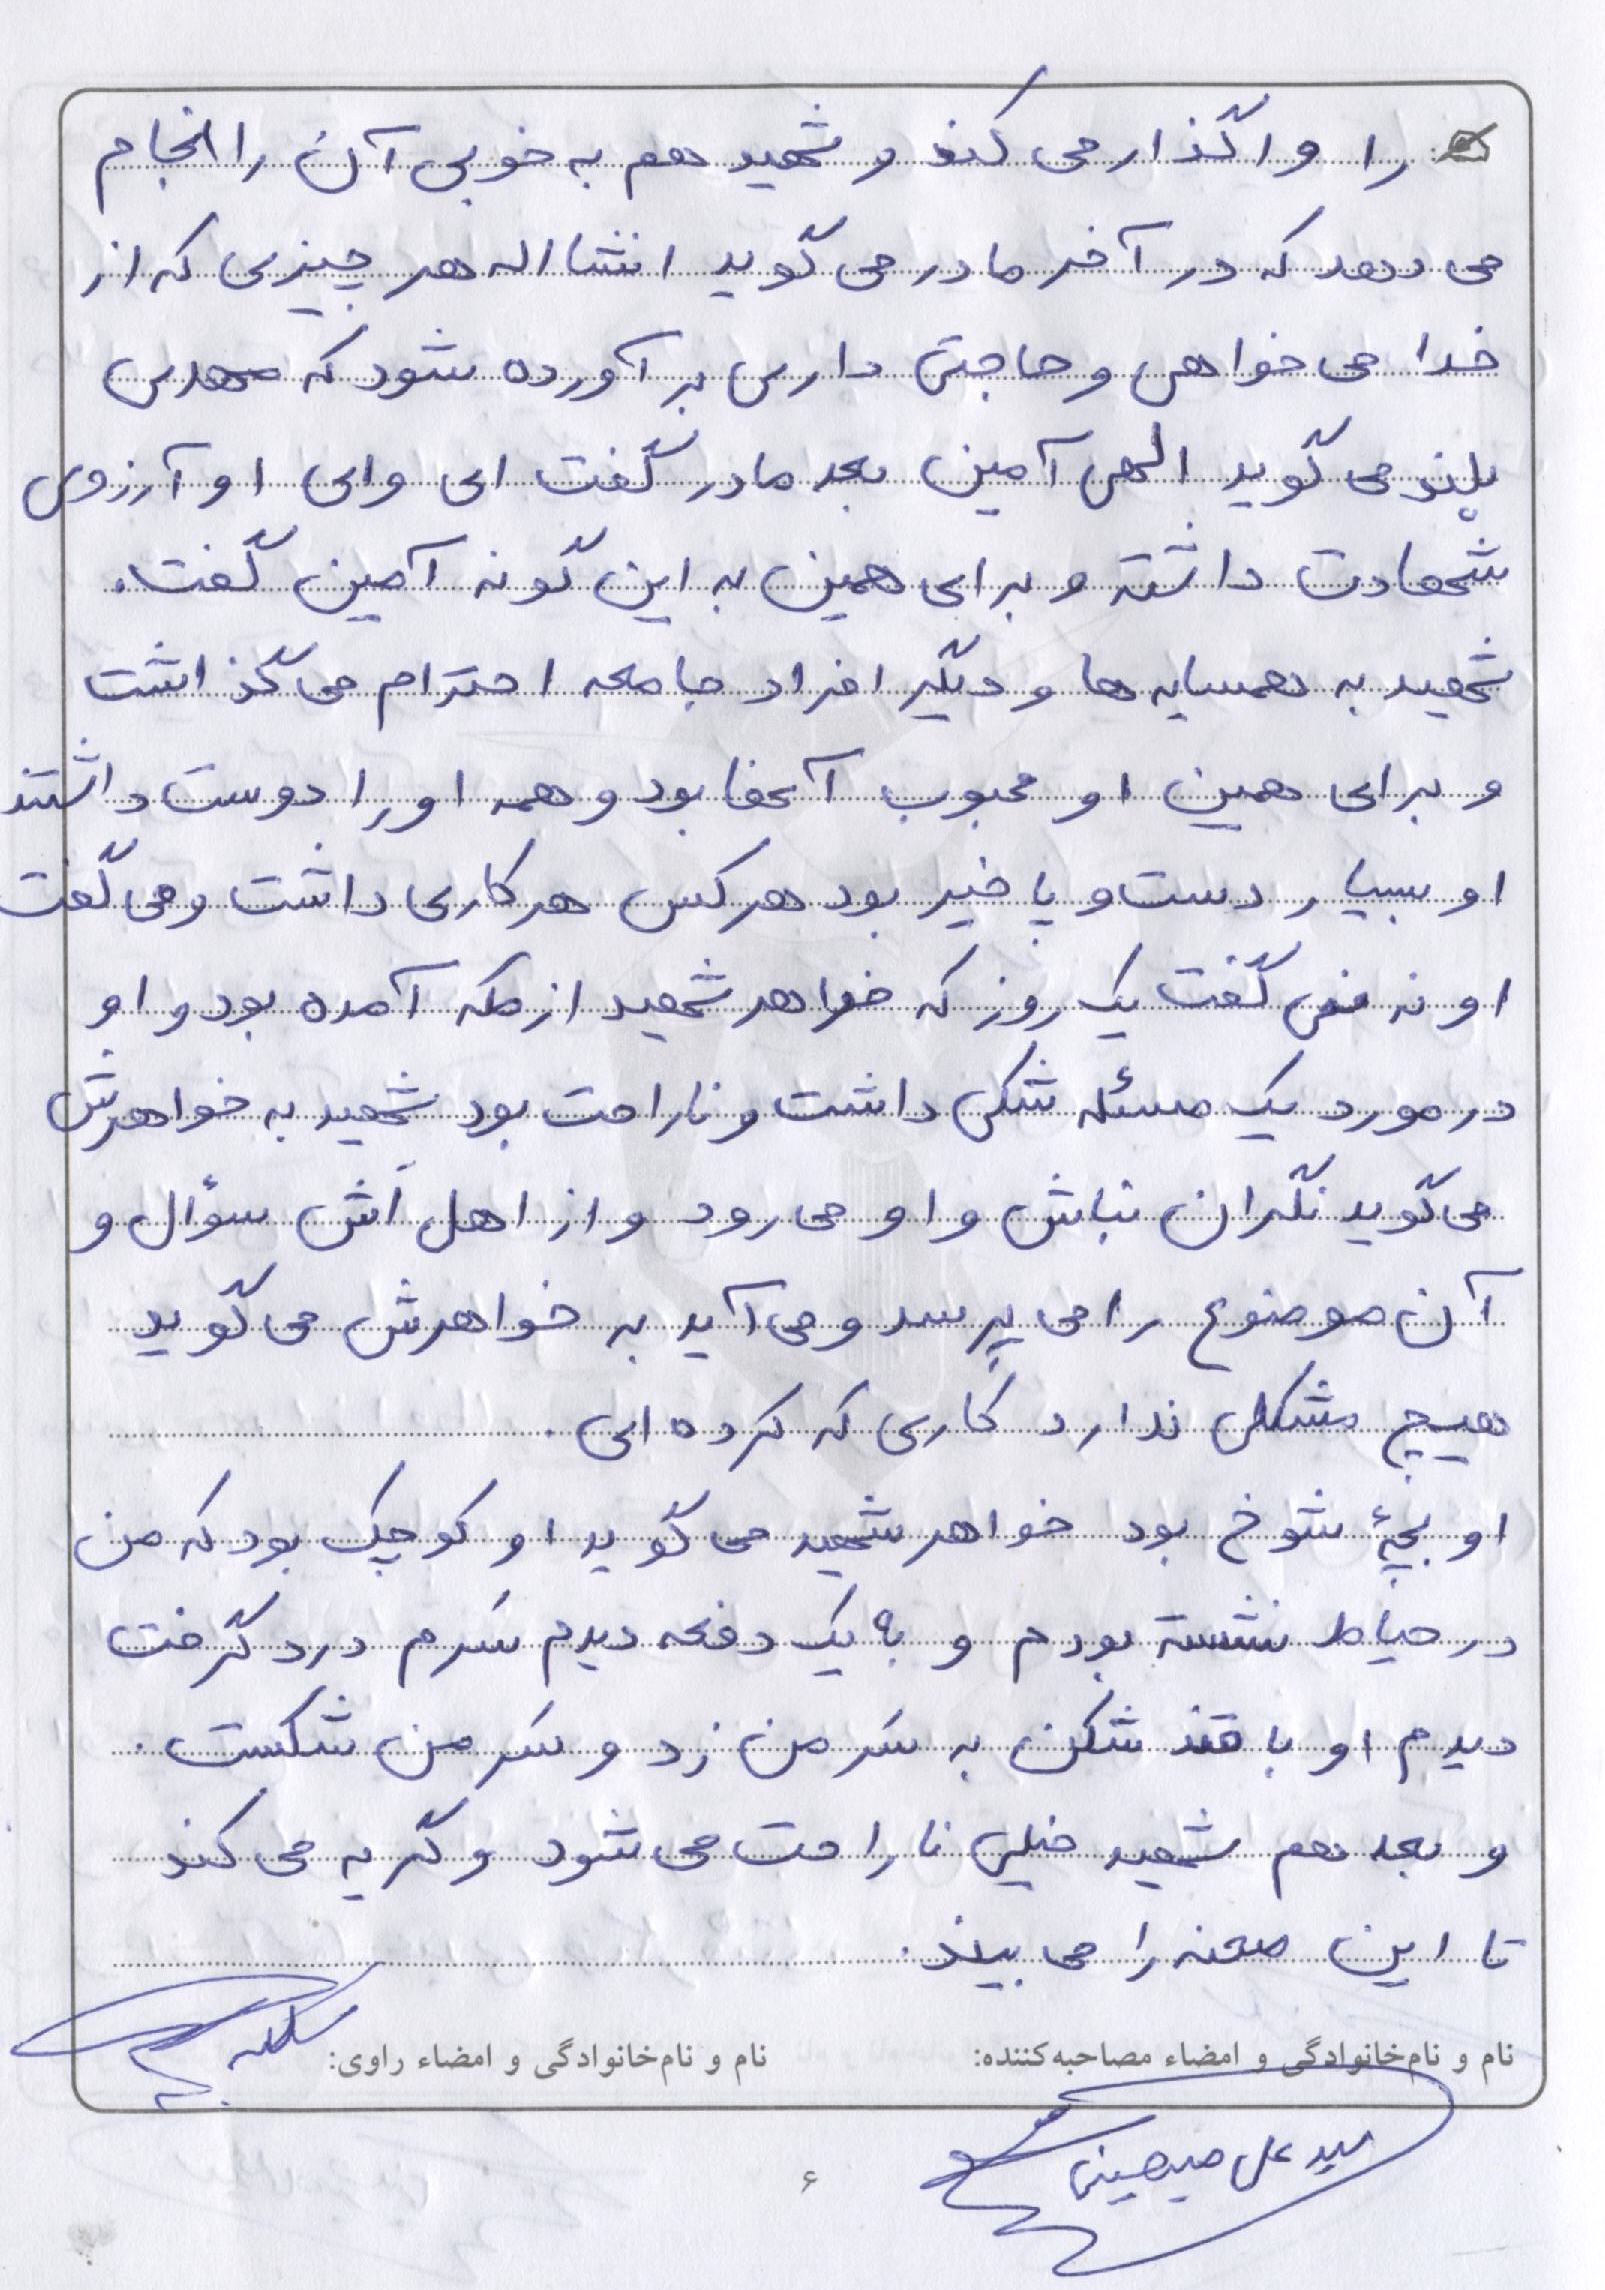 را واگذار می کند و شهید هم به خوبی آن را انجام
می دهد که در آخر مادر می گوید انشااله هر چیزی که از
خدا می خواهی و حاجتی داری برآورده شود که مهدی
بلند می گوید الهی آمین بعد مادر گفت ای وای او آرزوی
شهادت داشته و برای همین به این گونه آمین گفت.
شهید به همسایه ها و دیگر افراد جامعه احترام می گذاشت
و برای همین او محبوب آنها بود و همه او را دوست داشتند
او بسیار دست و پا خیر بود هر کس هر کاری داشت و می گفت
او نه نمی گفت یک روز که خواهر شهید از مکه آمده بود و او
در مورد یک مسئله شکی داشت و ناراحت بود شهید به خواهرش
می گوید نگران نباش و او می رود و از اهل اَش سوٴال و
آن موضوع را می پرسد و می آید به خواهرش می گوید
هیچ مشکلی ندارد کاری که کرده ای.
او بچهٔ شوخ بود خواهر شهید می گوید او کوچک بود که من
در حیاط نشسته بودم و به یک دفعه دیدم سَرم درد گرفت
دیدم او با قند شکن به سَر من زد و سَر من شکست.
و بعد هم شهید خیلی ناراحت می شود و گریه می کند
تا این صحنه را می بیند.
نام و نام‌خانوادگی و امضاء مصاحبه‌کننده: نام و نام‌خانوادگی و امضاء راوی:
سید علی میرحسینی
۶